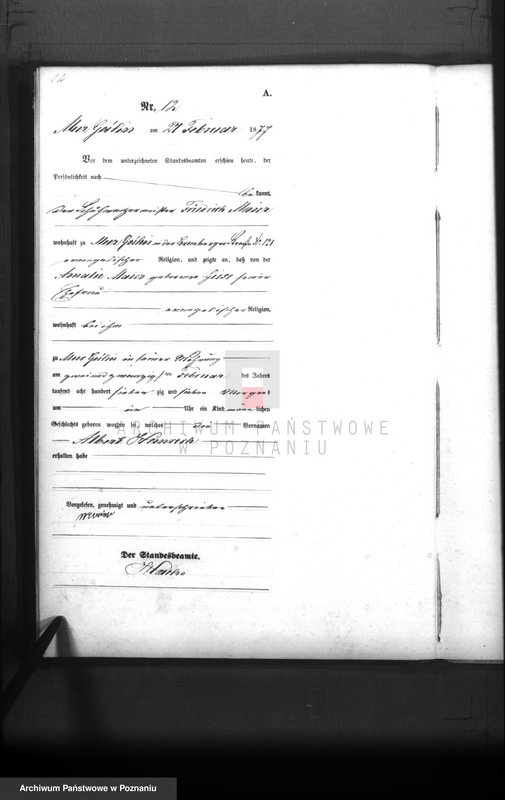 12
A.
Nr. 12
Mur Goslin am 27 Februar 1877
Vor dem unterzeichneten Standesbeamten erschien heute, der
Persönlichkeit nach
be kannt,
der Friedrich Maier
wohnhaft zu Mur Goslin in der Bromberger
evangelischer Religion, und zeigte an, daß von der
Amalie Maier geborenen seiner
Ehefrau
evangelischer Religion,
wohnhaft bei ihm
zu Mur Goslin in seiner Wohnung
am ten Februar des Jahres
tausend acht hundert sieben zig und sieben Morgens
um ein Uhr ein Kind männ lichen
Geschlechts geboren worden sei, welches den Vornamen
Albert Heinrich
erhalten habe
Vorgelesen, genehmigt und unterschrieben
Der Standesbeamte.
ARCHIWUM PAŃSTWOWE
W POZNANIU
Archiwum Państwowe w Poznaniu